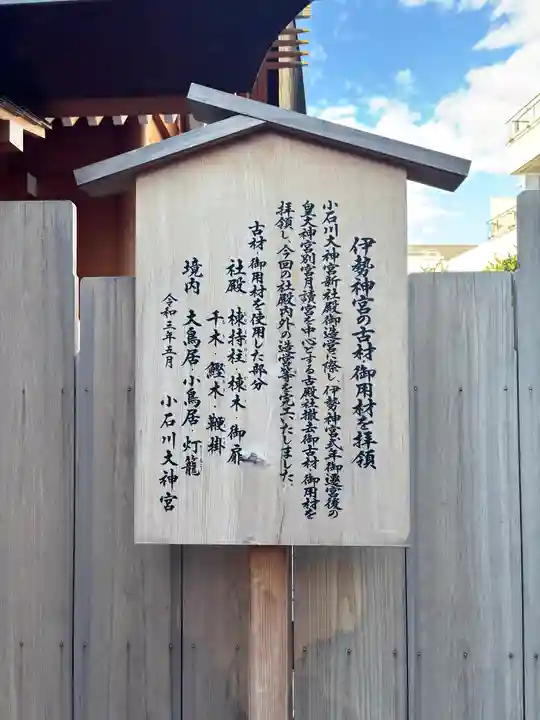 伊勢神宮の古材 御用材を拝領
小石川大神宮新社殿御造営に際し、伊勢神宮式年御遷宮後の
皇大神宮別宮月讀宮を中心とする古殿社撤去御古材・御用材を
拝領し、今回の社殿内外の造営等を完工いたしました。
古材 御用材を使用した部分
社殿 棟持柱・棟木・御扉
千木・鰹木・鞭掛
境内 大鳥居・小鳥居・灯籠
令和三年五月 小石川大神宮